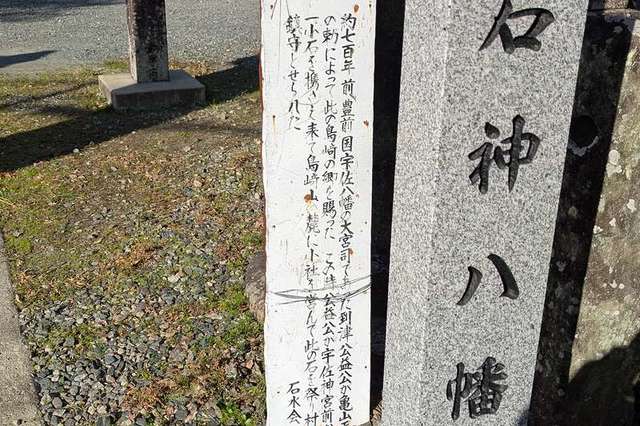 約七百年前豊前国宇佐八幡の大宮司であった到津公益公が亀山
の勅によって此の島崎の郷を賜った この時公益公が宇佐神宮前
一小石を携さえて来て島崎山の麓に小社を営んで此の石を祭り村
鎮守とせられた
石水会
石神八幡